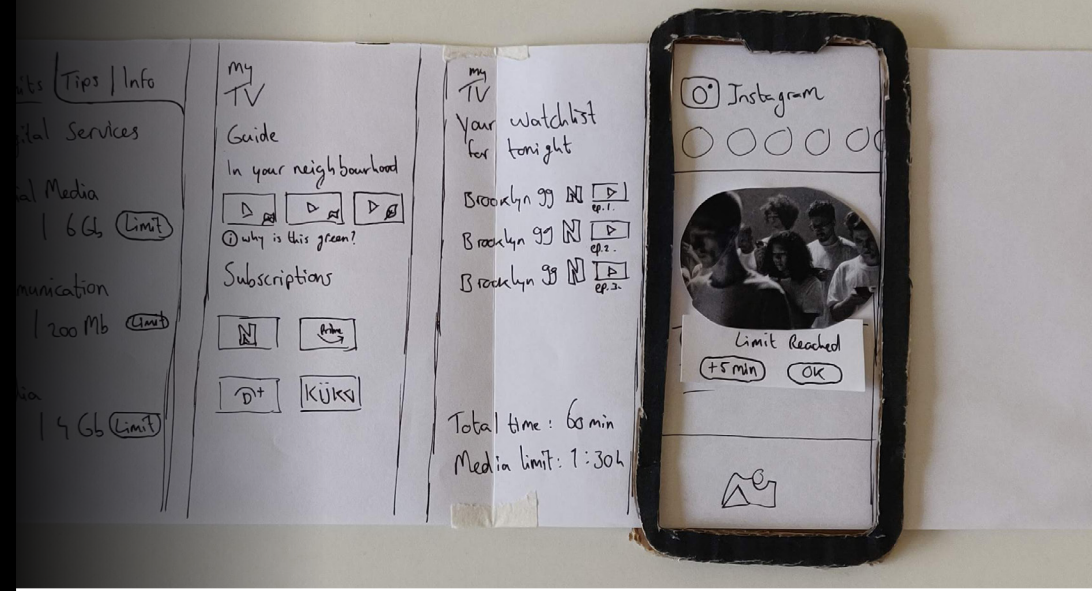 Tips | Info
Services
Media
6 Gb Limit
200 Mb Limit
4 Gb Limit
my
TV
Guide
In your neighbourhood
i why is this green?
Subscriptions
N
Prime
D+
KÜKU
my
TV
Your watchlist
for tonight
Brooklyn 99 N
ep.1.
Brooklyn 99 N
ep.2.
Brooklyn 99 N
ep.3.
Total time: 60 min
Media limit: 1:30h
Instagram
Limit Reached
+5 min OK